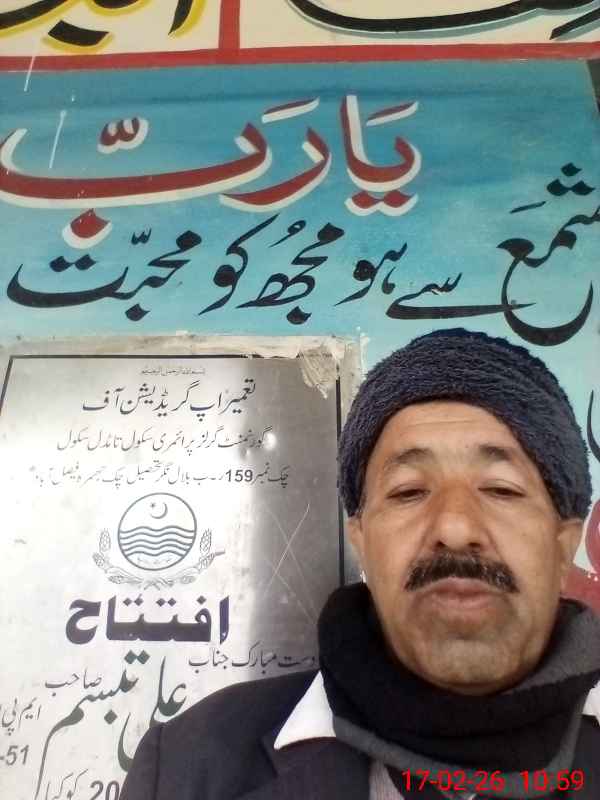 یا رَبّ
شمع سے ہو مجھ کو محبّت
بسم اللہ الرحمٰن الرحیم
تعمیر اپ گریڈیشن آف
گورنمنٹ گرلز پرائمری سکول تا مڈل سکول
چک نمبر 159 ر۔ب بلال نگر تحصیل چک جھمرہ فیصل آباد
افتتاح
دست مبارک جناب
علی تبسم صاحب
ایم پی
-51
کو کیا
17-02-26 10:59